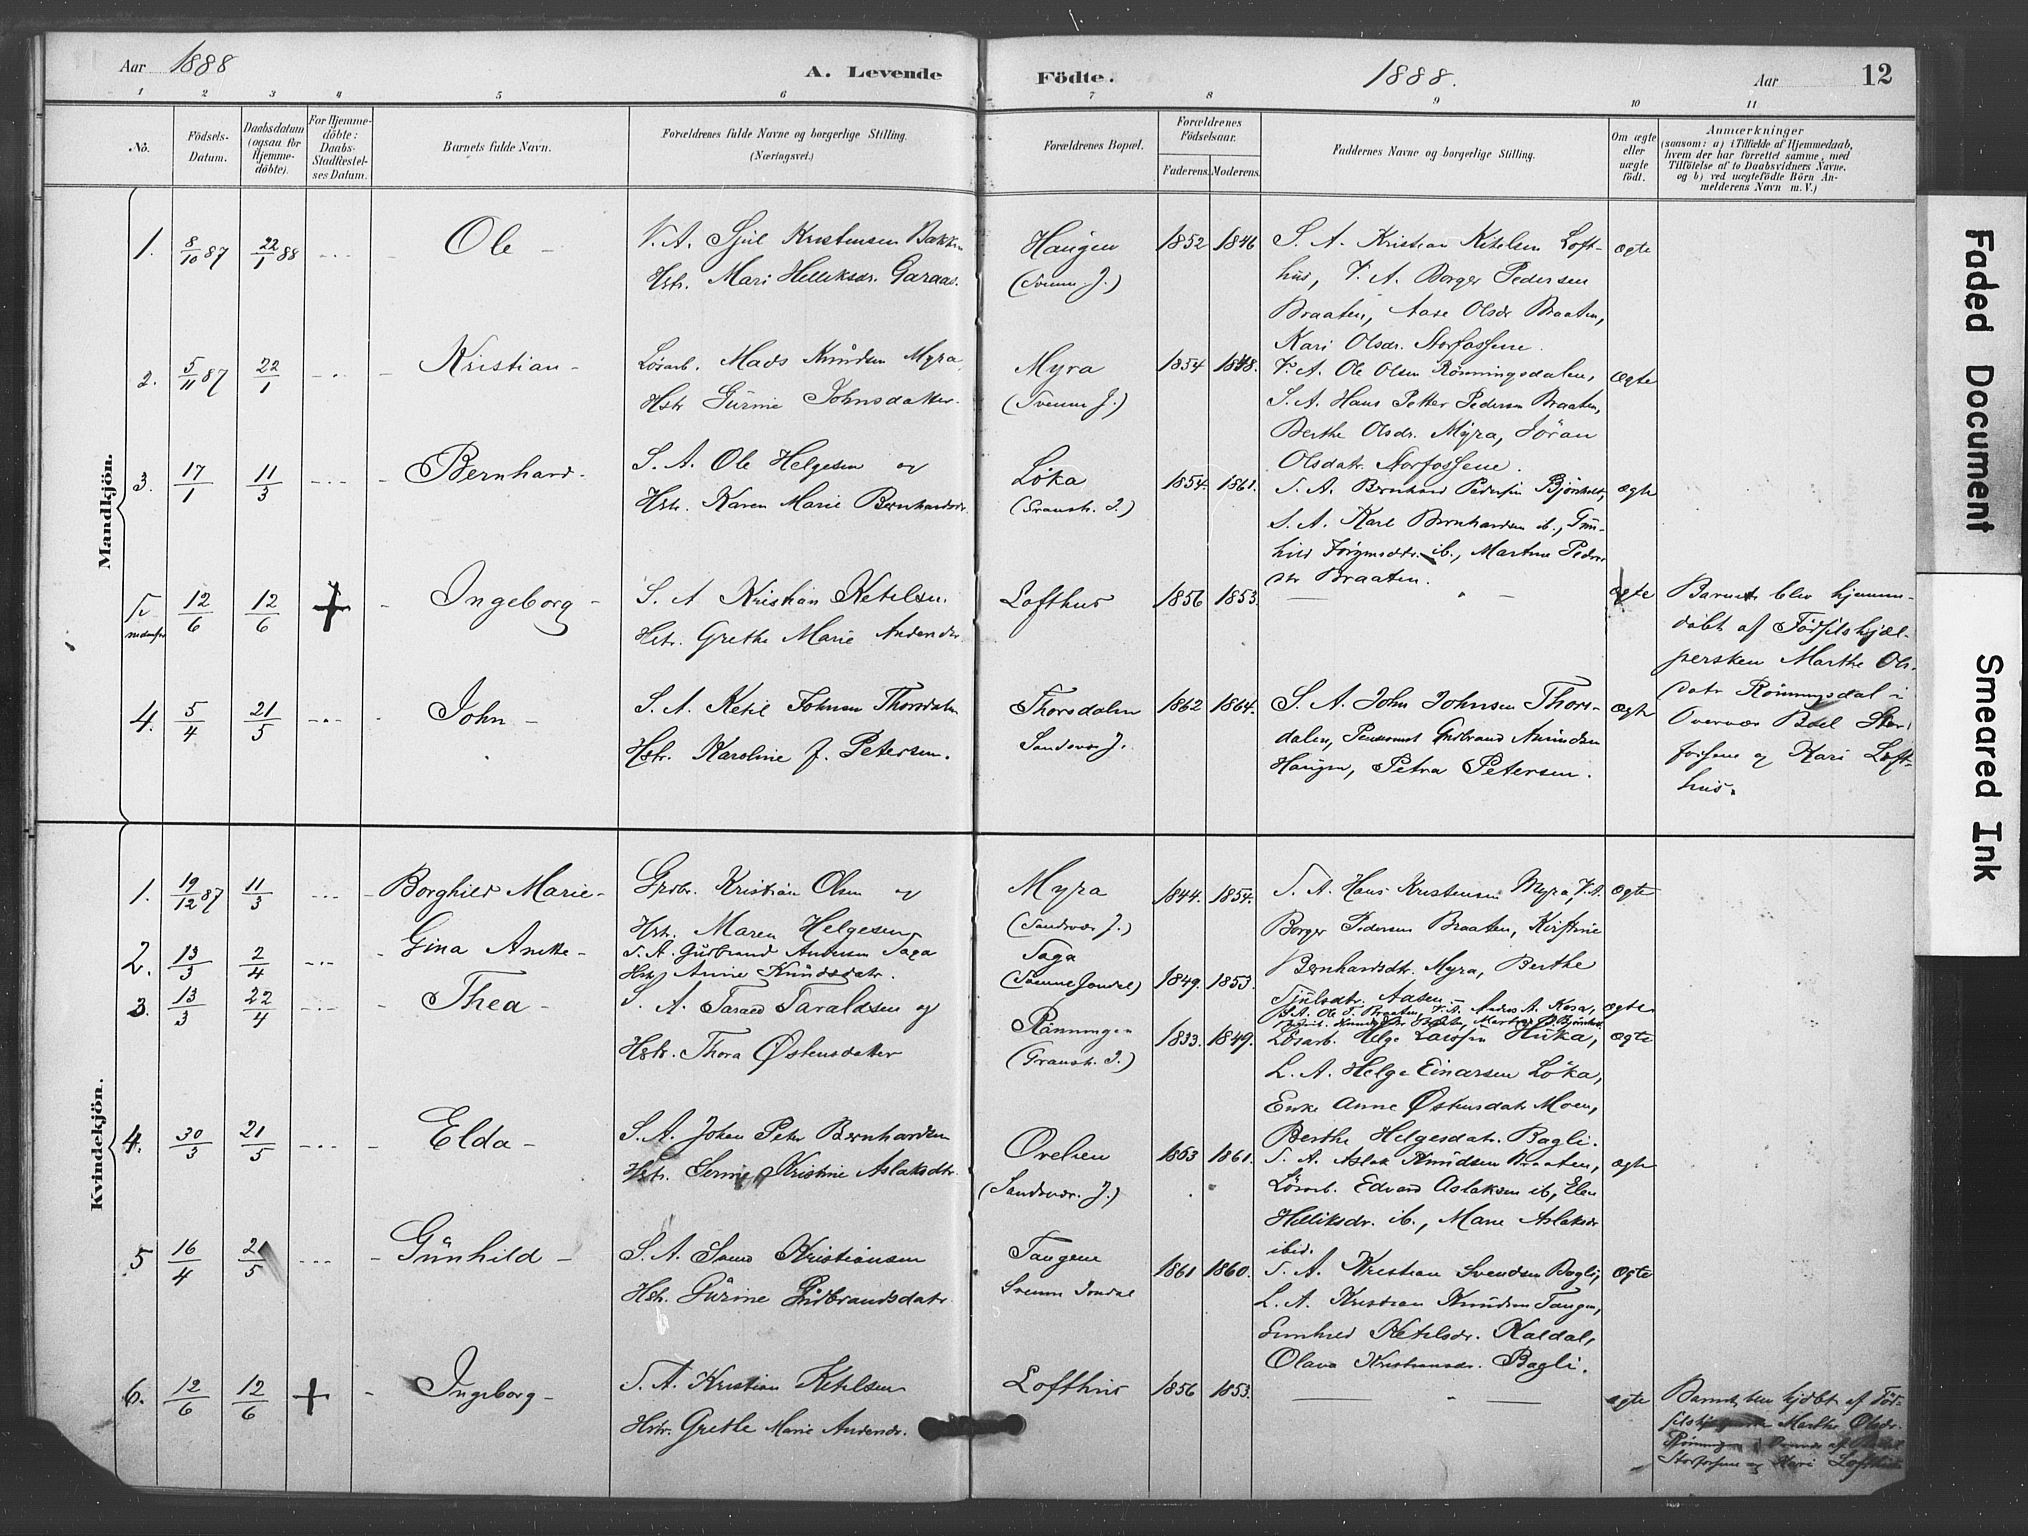 Aar 1888
A. Levende Födte.
1888.
Aar
12
1 2 3 4 5 6 7 8 9 10 11
No.
Födsels-
Datum.
Daabsdatum
(ogsaa för
Hjemme-
döbte).
For Hjemme-
döbte:
Daabs-
Stadfæstel-
ses Datum.
Barnets fulde Navn.
Forældrenes fulde Navne og borgerlige Stilling.
(Næringsvei.)
Forældrenes Bopæl.
Forældrenes
Födselsaar.
Faderens. Moderens.
Faddernes Navne og borgerlige Stilling.
Om ægte
eller
uægte
födt.
Anmærkninger
(saasom: a) i Tilfælde af Hjemmedaab,
hvem der har forrettet samme, med
Tilföielse af to Daabsvidners Navne,
og b) ved uægtefödte Börn An-
melderens Navn m. V.)
Mandkjön.
1. 8/10 87 22/1 88 Ole
V. A. Sjul Kristensen Bakken
Hstr. Mari Helliksdr. Garaas.
Haugen
(Svenn. J.)
1852 1846
S. A. Kristian Ketelsen Loft-
hus, V. A. Borger Pedersen
Braaten, Aase Olsdr Braaten,
Kari Olsdr. Storfossene.
ægte
2. 5/11 87 22/1 Kristian
Lösarb. Mads Knudsen Myra
Hstr Gurine Johnsdatter.
Myra
(Svenn J.)
1854 1848.
V. A. Ole Olsen Rönningsdalen,
S. A. Hans Petter Pedersen Braaten,
Berthe Olsdr. Myra, Jöran
Olsdatr. Storfossene.
ægte
3. 17/1 11/3 Bernhard
S. A. Ole Helgesen og
Hstr. Karen Marie Bernhardsdr.
Löka
(Granstr. J.)
1854. 1861.
S. A. Bernhard Pedersen Björnholt,
S. A. Karl Bernhardsen ib., Gun-
hild Jörgensdtr. ib., Martine Peders
dtr Braaten.
ægte
12/6 12/6 + Ingeborg
S. A Kristian Ketelsen.
Hstr. Grethe Marie Andersdr
Lofthus
1856 1853.
ægte
Barnet blev hjemme-
döbt af Födselshjæl-
persken Marthe Ols-
datr Rönningsdal i
Overvær Stor-
fossene og Kari Loft-
hus.
4. 5/4 21/5 John
S. A. Ketil Johnsen Thorsdalen
Hstr. Karoline J. Petersen.
Thorsdalen
Sandsvær J.
1862 1864.
S. A. John Johnsen Thors-
dalen, Gudbrand Amundsen
Haugen, Petra Petersen.
ægte
Kvindekjön.
1. 19/12 87 11/3 Borghild Marie
Grdbr. Kristian Olsen og
Hstr. Maren Helgesen
Myra
(Sandsvær J.)
1844. 1854.
S. A. Hans Kristensen Myra, V. A.
Borger Pedersen Braaten, Kirstine
Bernhardsdtr. Myra, Berthe
Sjulsdtr. Aasen.
ægte
2. 13/3 2/4 Gina Anette
S. A. Gudbrand Andersen Saga
Hstr. Anne Knudsdatr.
Saga
(Svenne Jondal)
1849. 1853.
ægte
3. 13/3 22/4 Thea
S. A. Taraldsen og
Hstr. Thora Östensdatter
Rönningen
(Granstr. J.)
1833. 1849.
Lösarb. Helge Larssen Huka,
L. A. Helge Einarsen Löka,
Enke Anne Östensdatr Moen,
Berthe Helgesdatr. Bagli.
ægte
4. 30/3 21/5 Elda
S. A. Johan Peter Bernhardsen
Hstr. Kristine Aslaksdtr.
Ovelien
(Sandsvær. J.)
1863 1861.
S. A. Aslak Knudsen Braaten,
Lösarb. Edvard Aslaksen ib, Elen
Helliksdr. ib., Marie Aslaksdr
ibid.
ægte
5 16/4 21/5 Gunhild
S. A. Svend Kristiansen
Hstr. Gurine Gudbrandsdatr.
Tangene
Svenne Jondal
1861 1860.
S. A. Kristian Svendsen Bagli,
L. A. Kristian Knudsen Tangen,
Gunhild Ketelsdr. Kaldal,
Olava Kristiansdr. Bagli.
ægte
6. 12/6 12/6 + Ingeborg
S. A. Kristian Ketelsen
Hstr. Grethe Marie Andersdr.
Lofthus
1856 1853.
ægte
Barnet blev hjdöbt af Föd-
Marthe Olsdr.
Storfossene og Kari Lofthus
Faded Document
Smeared Ink